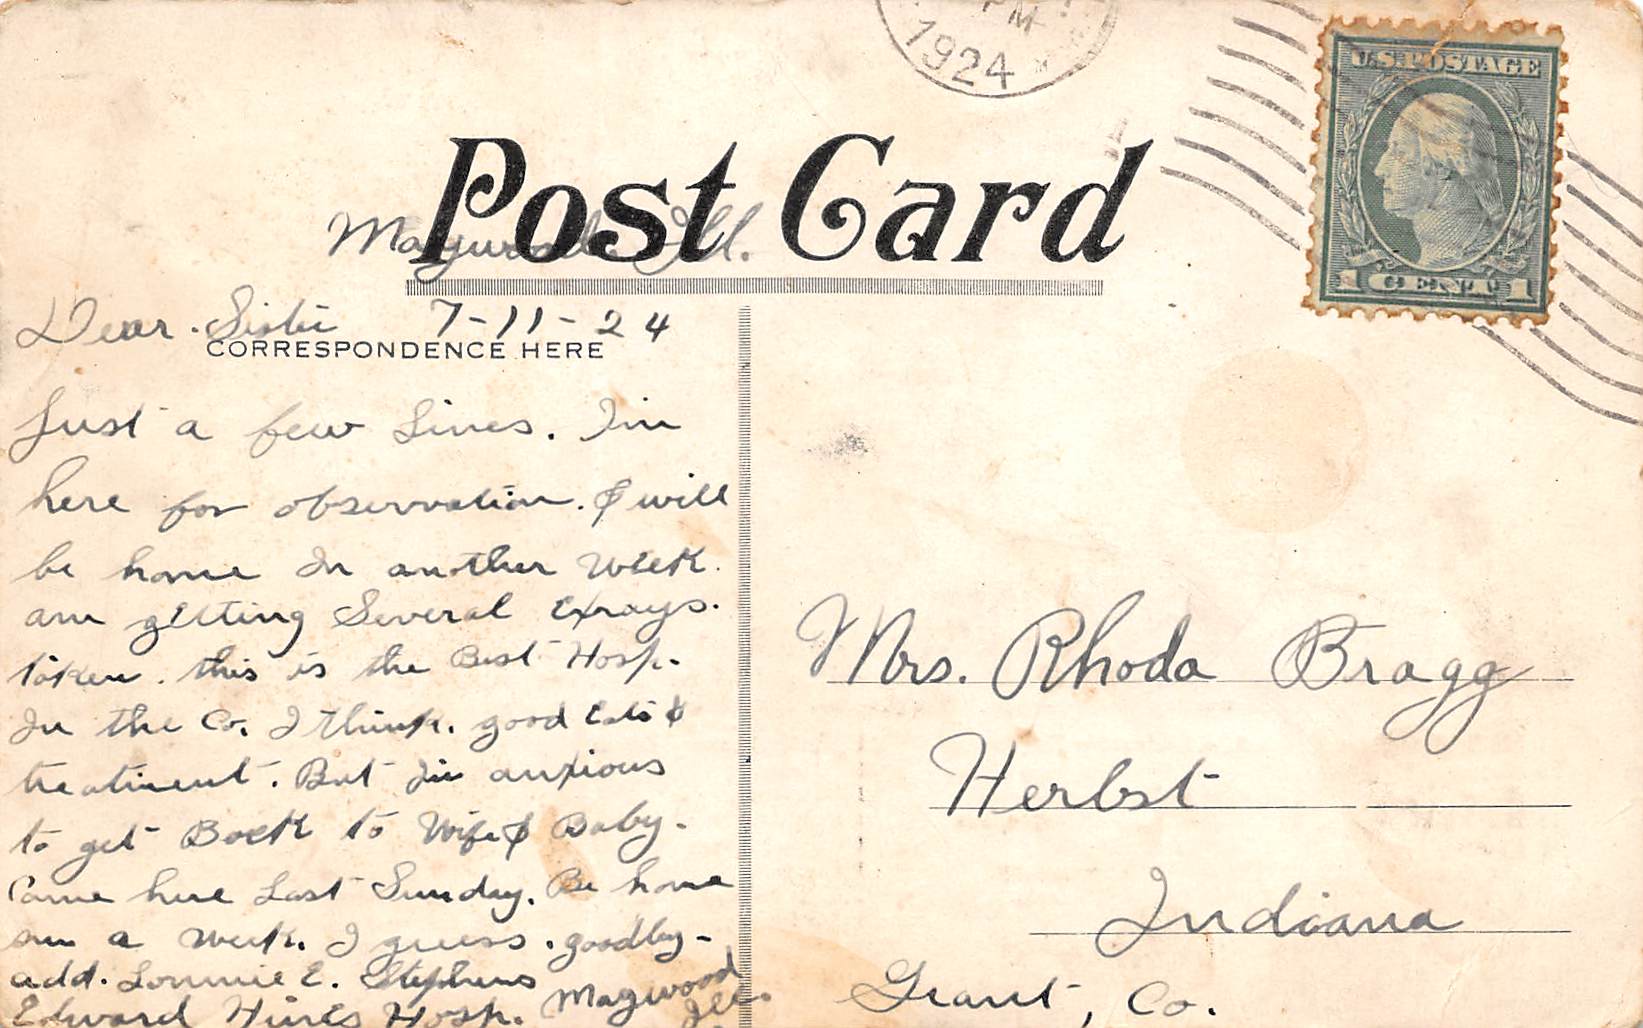 PM
1924
U.S. POSTAGE
1 CENT 1
Post Card
Maywood Ill.
Dear Sister 7-11-24
CORRESPONDENCE HERE
Just a few Lines. I'm
here for observation. & will
be home In another Week.
am getting Several Exrays.
taken. this is the Best Hosp.
In the Co. I think. good Eats &
treatment. But I'm anxious
to get Back to Wife & Baby.
Came here Last Sunday. Be home
in a week. I guess. goodby-
add. Lonnie E. Stephens
Edward Hines Hosp. Maywood
Ill.
Mrs. Rhoda Bragg
Herbst
Indiana
Grant, Co.